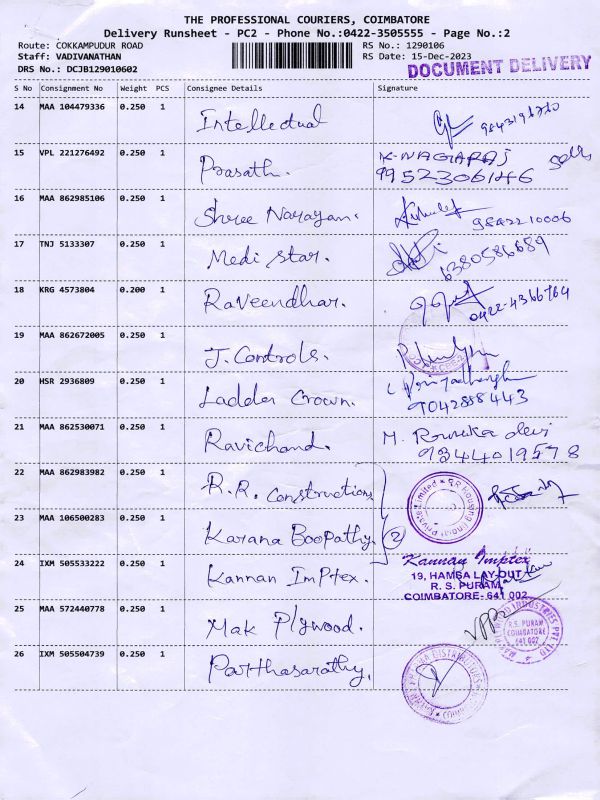 THE PROFESSIONAL COURIERS, COIMBATORE
Delivery Runsheet - PC2 - Phone No.:0422-3505555 - Page No.:2
Route: COKKAMPUDUR ROAD
Staff: VADIVANATHAN
DRS No.: DCJB129010602
RS No.: 1290106
RS Date: 15-Dec-2023
DOCUMENT DELIVERY
S No Consignment No Weight PCS Consignee Details Signature
14 MAA 104479336 0.250 1 Intellectual
15 VPL 221276492 0.250 1 Prasath. K-NAGARAJ
9952306146
16 MAA 862985106 0.250 1 Shree Narayan. 9842210006
17 TNJ 5133307 0.250 1 Medi Star. 6380586689
18 KRG 4573804 0.200 1 Raveendhar. 0422-4366764
19 MAA 862672005 0.250 1 J. Controls.
20 HSR 2936809 0.250 1 Ladder Crown. 9042888443
21 MAA 862530071 0.250 1 Ravichand. M. Renuka devi
9344019578
22 MAA 862983982 0.250 1 R.R. Constructions
R.R Housing (India) Private Limited
23 MAA 106500283 0.250 1 Karana Boopathy. 2
24 IXM 505533222 0.250 1 Kannan Imptex.
Kannan Imptex
19, HAMSA LAY-OUT
R. S. PURAM,
COIMBATORE- 641 002
25 MAA 572440778 0.250 1 Mak Plywood.
INDUSTRIES PVT. LTD
R.S. PURAM
COIMBATORE
641 002
26 IXM 505504739 0.250 1 Parthasarathy.
DISTRIBUTORS